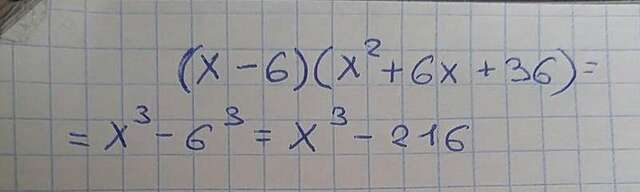 (x - 6)(x² + 6x + 36) =
= x³ - 6³ = x³ - 216